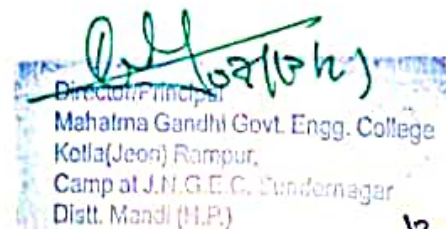 Director/Principal
Mahatma Gandhi Govt. Engg. College
Kotla(Jeori) Rampur,
Camp at J.N.G.E.C. Sundernagar
Distt. Mandi (H.P.)